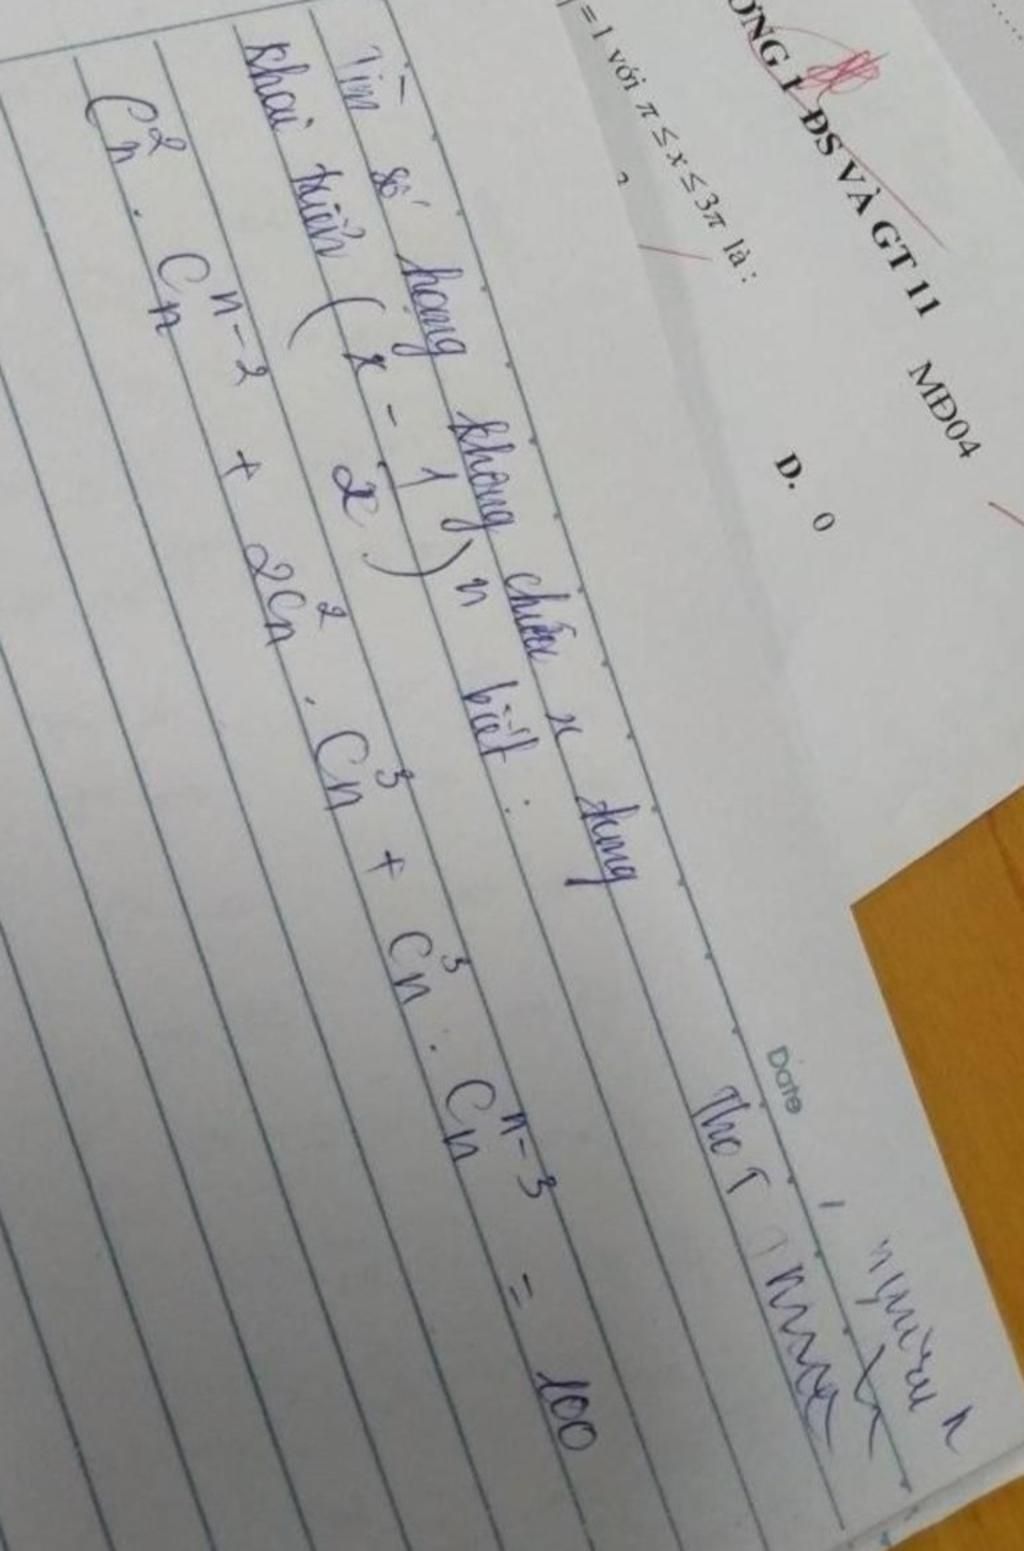 ƠNG I ĐS VÀ GT 11 MĐ04
= 1 với π ≤ x ≤ 3π là :
D. 0
Date
Tìm số hạng không chứa x trong
khai triển ( x - 1/x )^n biết :
C_n^2 . C_n^{n-2} + 2C_n^2 . C_n^3 + C_n^3 . C_n^{n-3} = 100